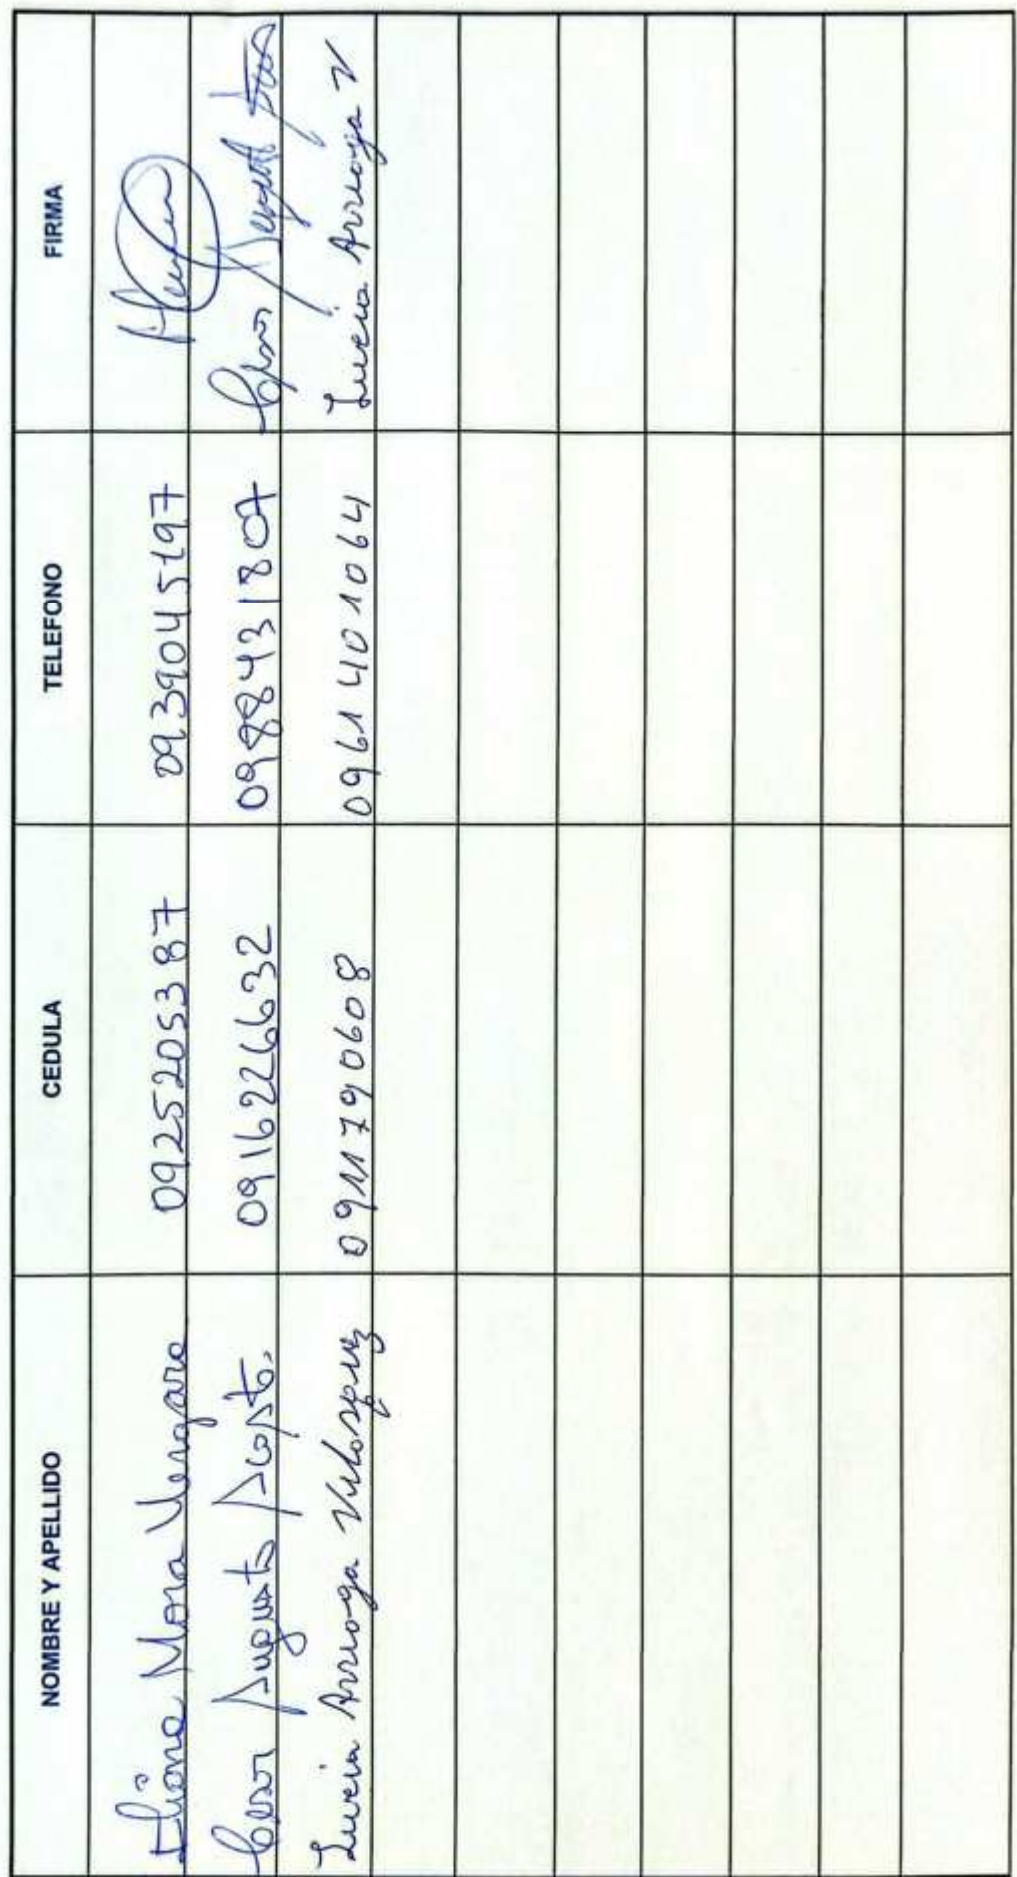 NOMBRE Y APELLIDO CEDULA TELEFONO FIRMA
Eliana Mora Vergara 0925205387 0939045197
Cesar Augusto Acosta 091622632 0988431807 Cesar Augusto
Lucia Arreaga Velasquez 0911790608 0961401064 Lucia Arreaga V